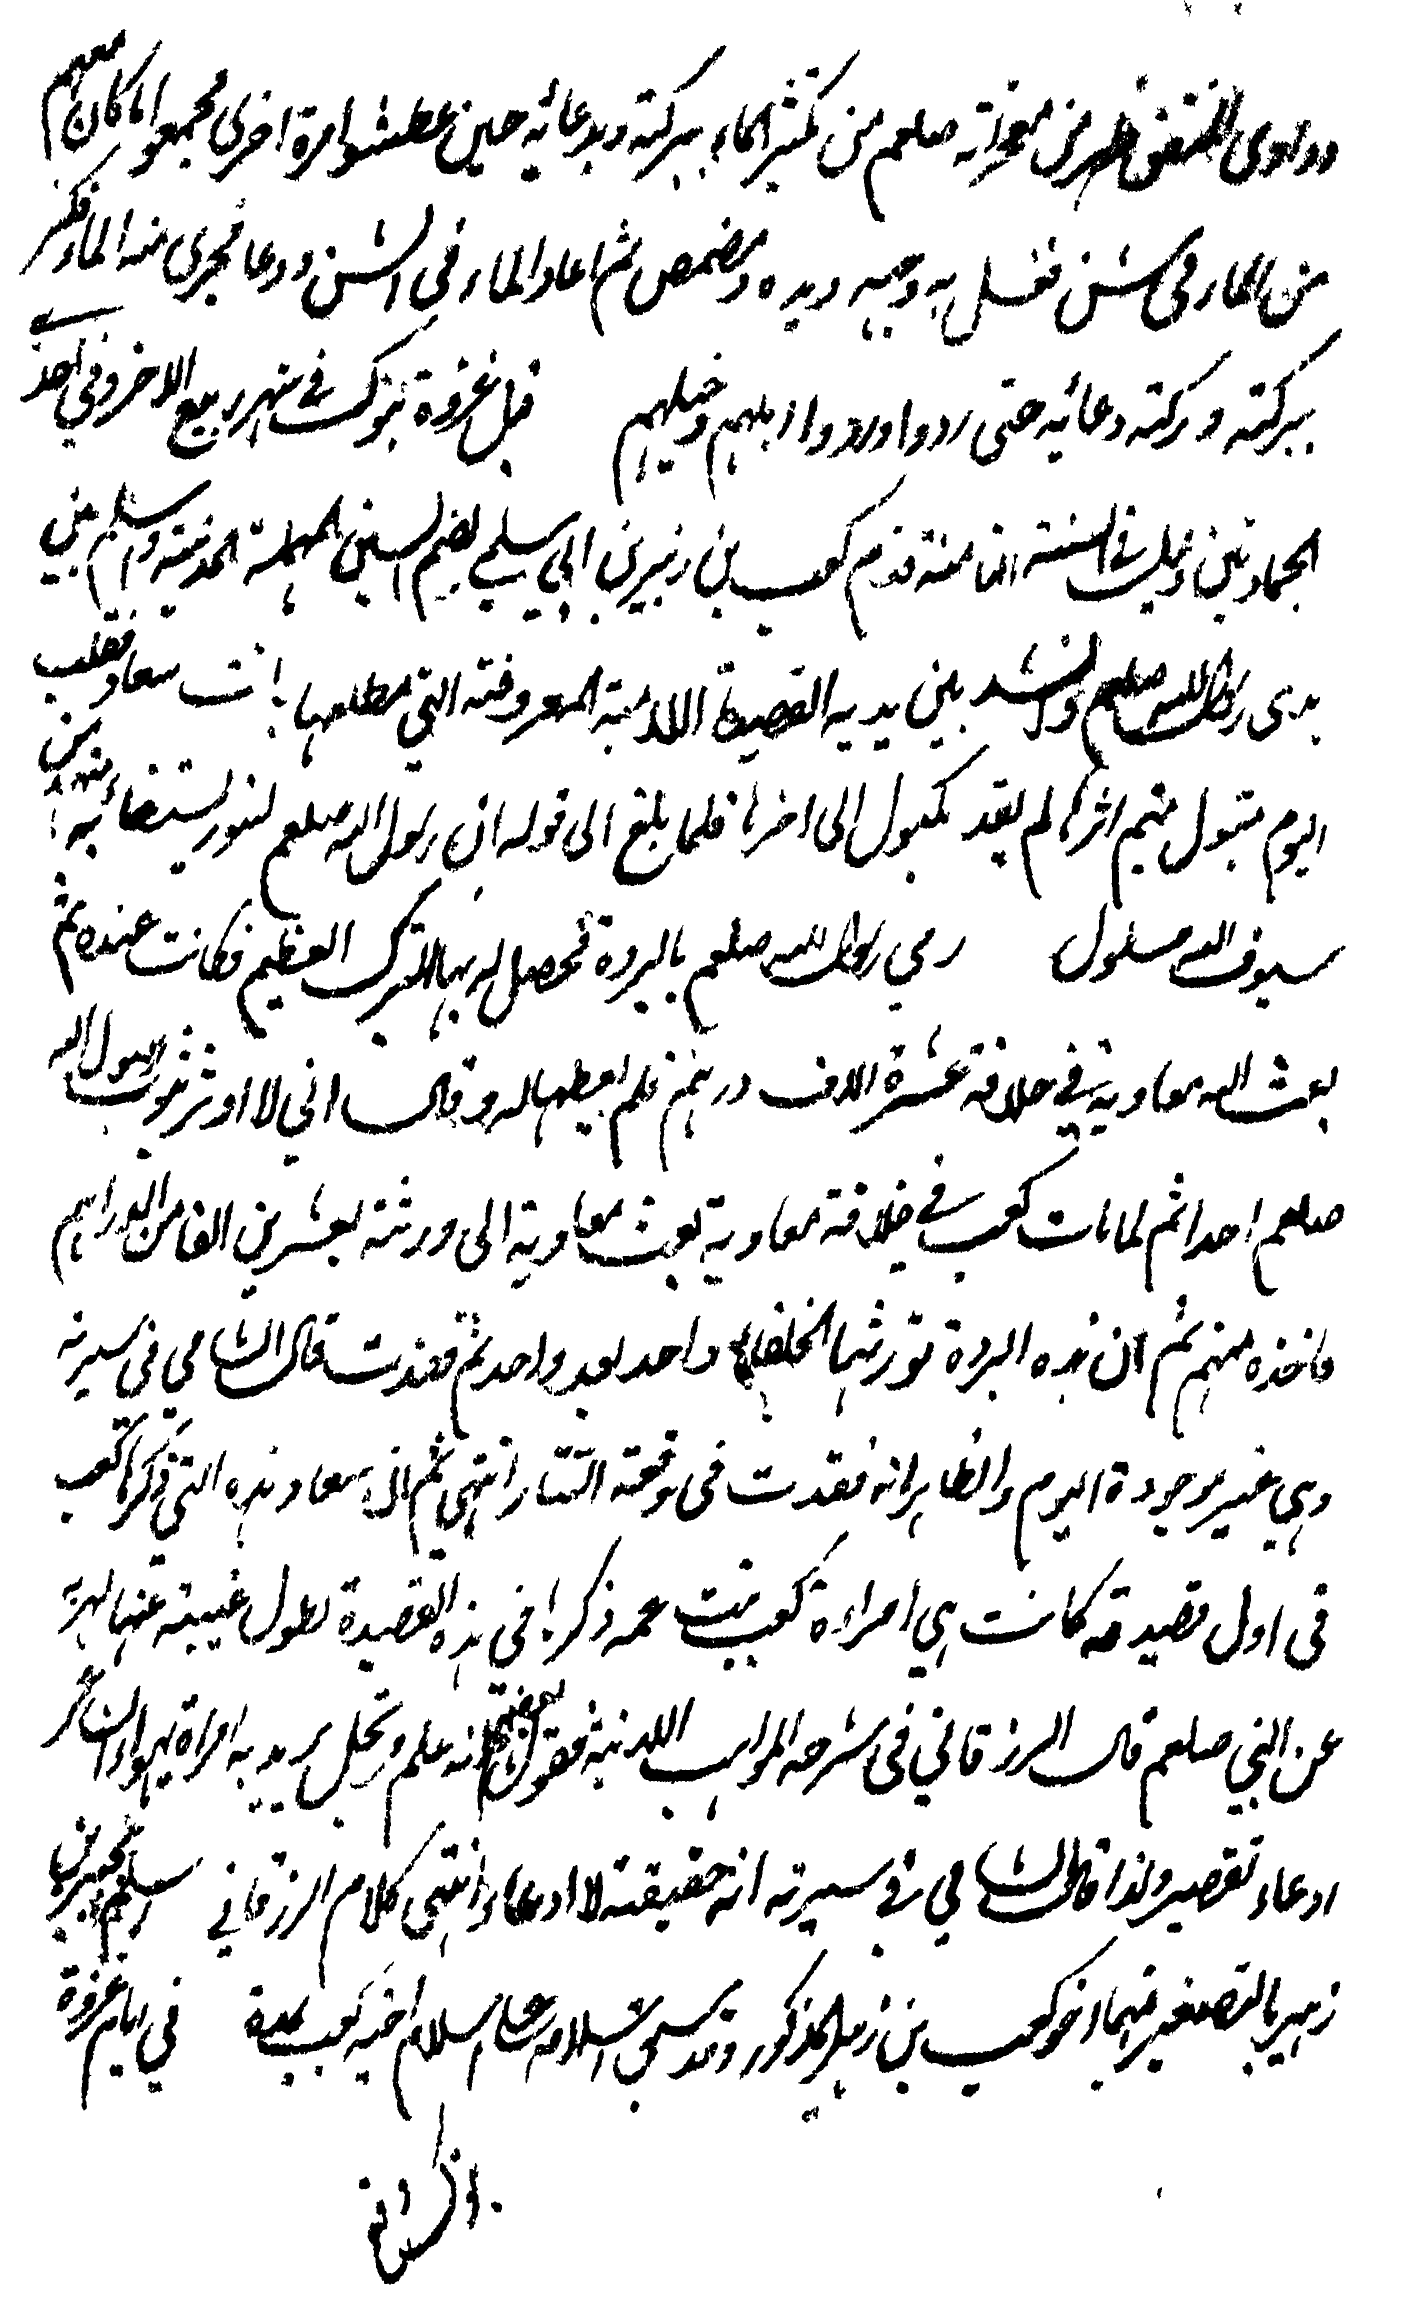 ووادى المشقق ظهر من معجزاته صلعم من تكثير الماء ببركته وبدعائه حين عطشوا مرة اخرى فجمعوا ما كان معهم
من الماء فى شن فغسل به وجهه ويديه ومضمض ثم اعاد الماء فى الشن ودعا فجرى منه الماء فكثر
ببركته وبركة دعائه حتى رووا وارووا ابلهم وخيلهم قبل غزوة تبوك فى شهر ربيع الاخر وفي احدے
الجمادين وقيل فى السنة الثامنة قدم كعب بن زهير بن ابي سلمي بضم السين المهملة المدينة واسلم بين
يدى رسول الله صلعم وانشد بين يديه القصيدة اللامية المعروفة التي مطلعها بانت سعاد فقلبي
اليوم متبول متيم اثرها لم يفد مكبول الى اخرها فلما بلغ الى قوله ان رسول الله صلعم لنور يستضاء به مهند من
سيوف الله مسلول رمي رسول الله صلعم بالبردة فحصل له بها التبرك العظيم فكانت عنده ثم
بعث اليه معاوية في خلافته عشرة الاف درهم فلم يعطها له وقال اني لا اوثر بثوب رسول الله
صلعم احدا ثم لما مات كعب فى خلافة معاوية بعث معاوية الى ورثته بعشرين الفا من الدراهم
فاخذه منهم ثم ان هذه البردة تورثها الخلفاء واحد بعد واحد ثم فقدت قال الشامي فى سيرته
وهي غير موجودة اليوم والظاهر انه فقدت فى وقعة التتار انتهي ثم ان سعاد هذه التي ذكرها كعب
فى اول قصيدته كانت هي امراة كعب بنت عمه ذكرها في هذه القصيدة لطول غيبته عنها لهربه
عن النبي صلعم قال الزرقاني فى شرحه المواهب اللدنية فقول بعضهم انه علم مرتجل يريد به امراة يهواها الشاعر
ادعاء تقصير ولذا قال الشامي في سيرته انه حقيقة لا ادعاء انتهى كلام الزرقاني واسلم بجير بن
زهير بالتصغير فيهما اخو كعب بن زهير المذكور وقد سبق اسلامه على اسلام اخيه كعب بمدة في ايام غزوة